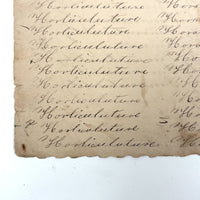 Horticulture Ho
Horticuluture Hor
Horticuluture Hor
Horticuluture Hor
Horticuluture Hor
Horticuluture Hor
Horticuluture Hor
Horticuluture Hor
Horticuluture Hor
Horticuluture Horti
Horticuluture Horti